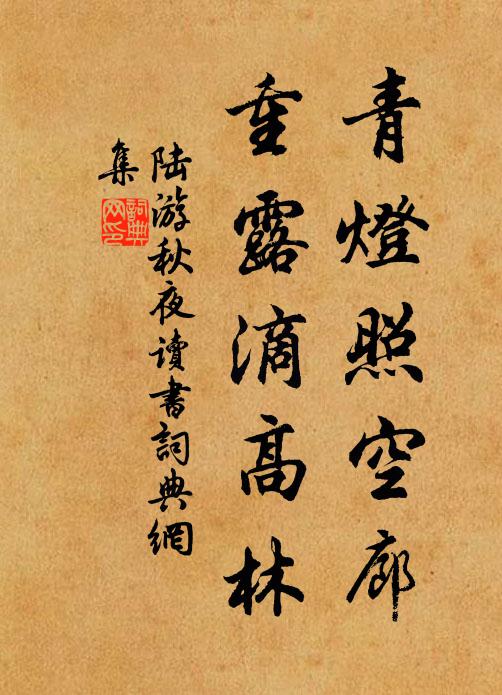 青燈照空廊
重露滴高林
陸游秋夜讀書詞典網
集
詞典
网印